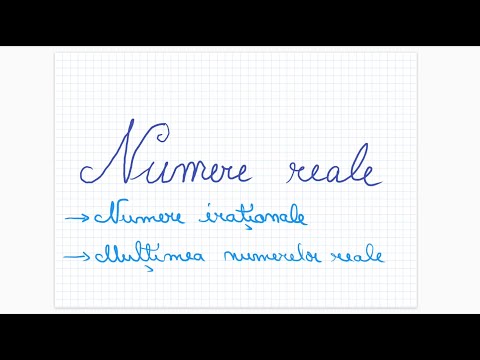 Numere reale
→ Numere iraționale
→ Mulțimea numerelor reale